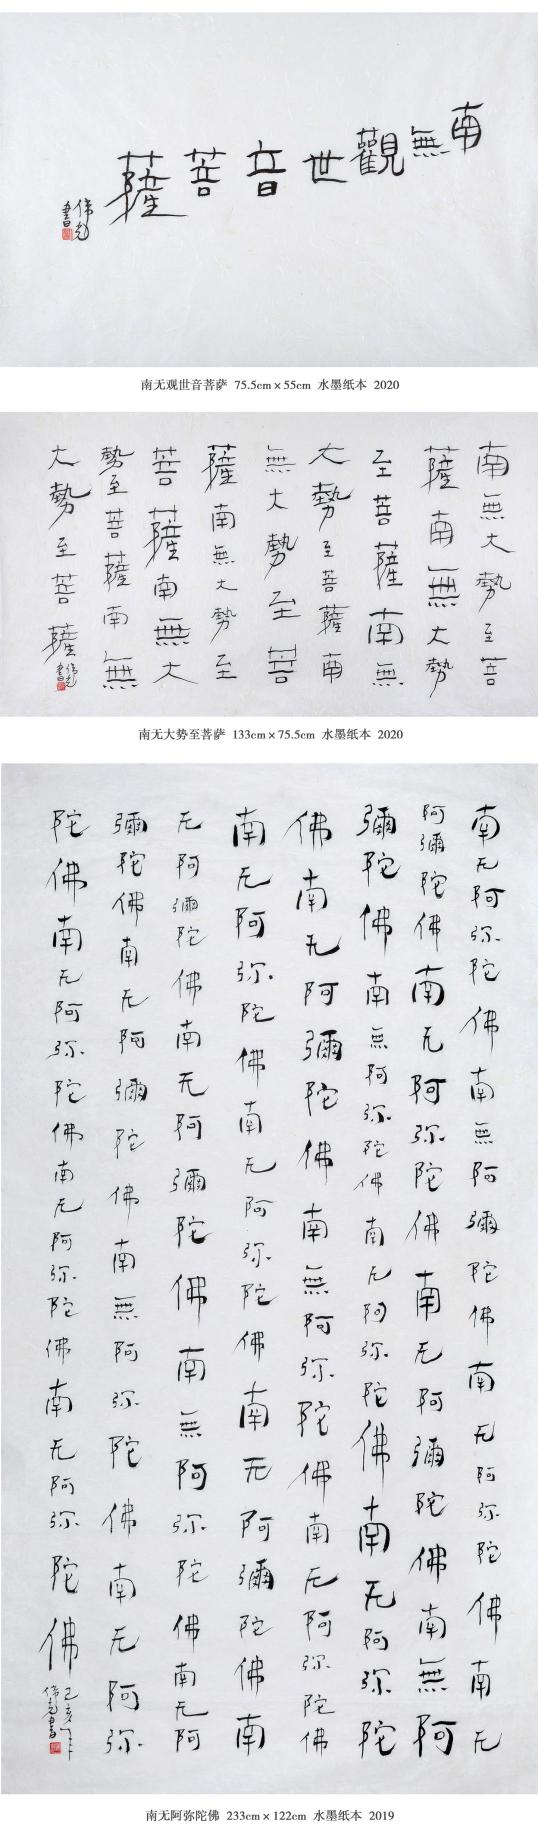 南無觀世音菩薩
書
南无观世音菩萨 75.5cm×55cm 水墨纸本 2020
南無大勢至菩
薩南無大勢
至菩薩南無
大勢至菩薩南
無大勢至菩
薩南無大勢至
菩薩南無大
勢至菩薩南無
大勢至菩薩
書
南无大势至菩萨 133cm×75.5cm 水墨纸本 2020
南无阿弥陀佛南無阿彌陀佛南无阿弥陀佛南无
阿彌陀佛南无阿弥陀佛南无阿彌陀佛南無阿
彌陀佛南無阿弥陀佛南无阿弥陀佛南无阿弥陀
佛南无阿彌陀佛南無阿弥陀佛南无阿弥陀佛
南无阿弥陀佛南无阿弥陀佛南无阿彌陀佛南
无阿彌陀佛南无阿彌陀佛南無阿弥陀佛南无阿
彌陀佛南无阿彌陀佛南無阿弥陀佛南无阿弥
陀佛南无阿弥陀佛南无阿弥陀佛南无阿弥陀佛
己亥年
書
南无阿弥陀佛 233cm×122cm 水墨纸本 2019